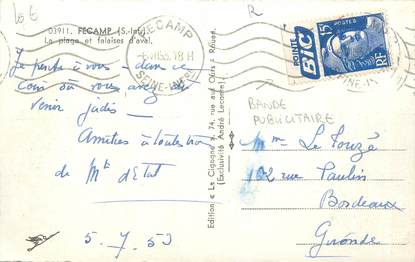 10 E
R
03911. FECAMP (S.-Inf.)
La plage et falaises d'aval.
FECAMP
18 H
SEINE-INFRE
POINTE
BIC
15F
POSTES
RF
BANDE
PUBLICITAIRE
Je pense à vous - dans ce
coin où vous avez dû
venir jadis -
Amitiés à toute
de Mt d'Etat
5.7.53
Edition « La Cigogne », 74, rue aux Ours - Rouen
(Exclusivité André Leconte)
Mme Le Touzé
102 rue Paulin
Bordeaux
Gironde